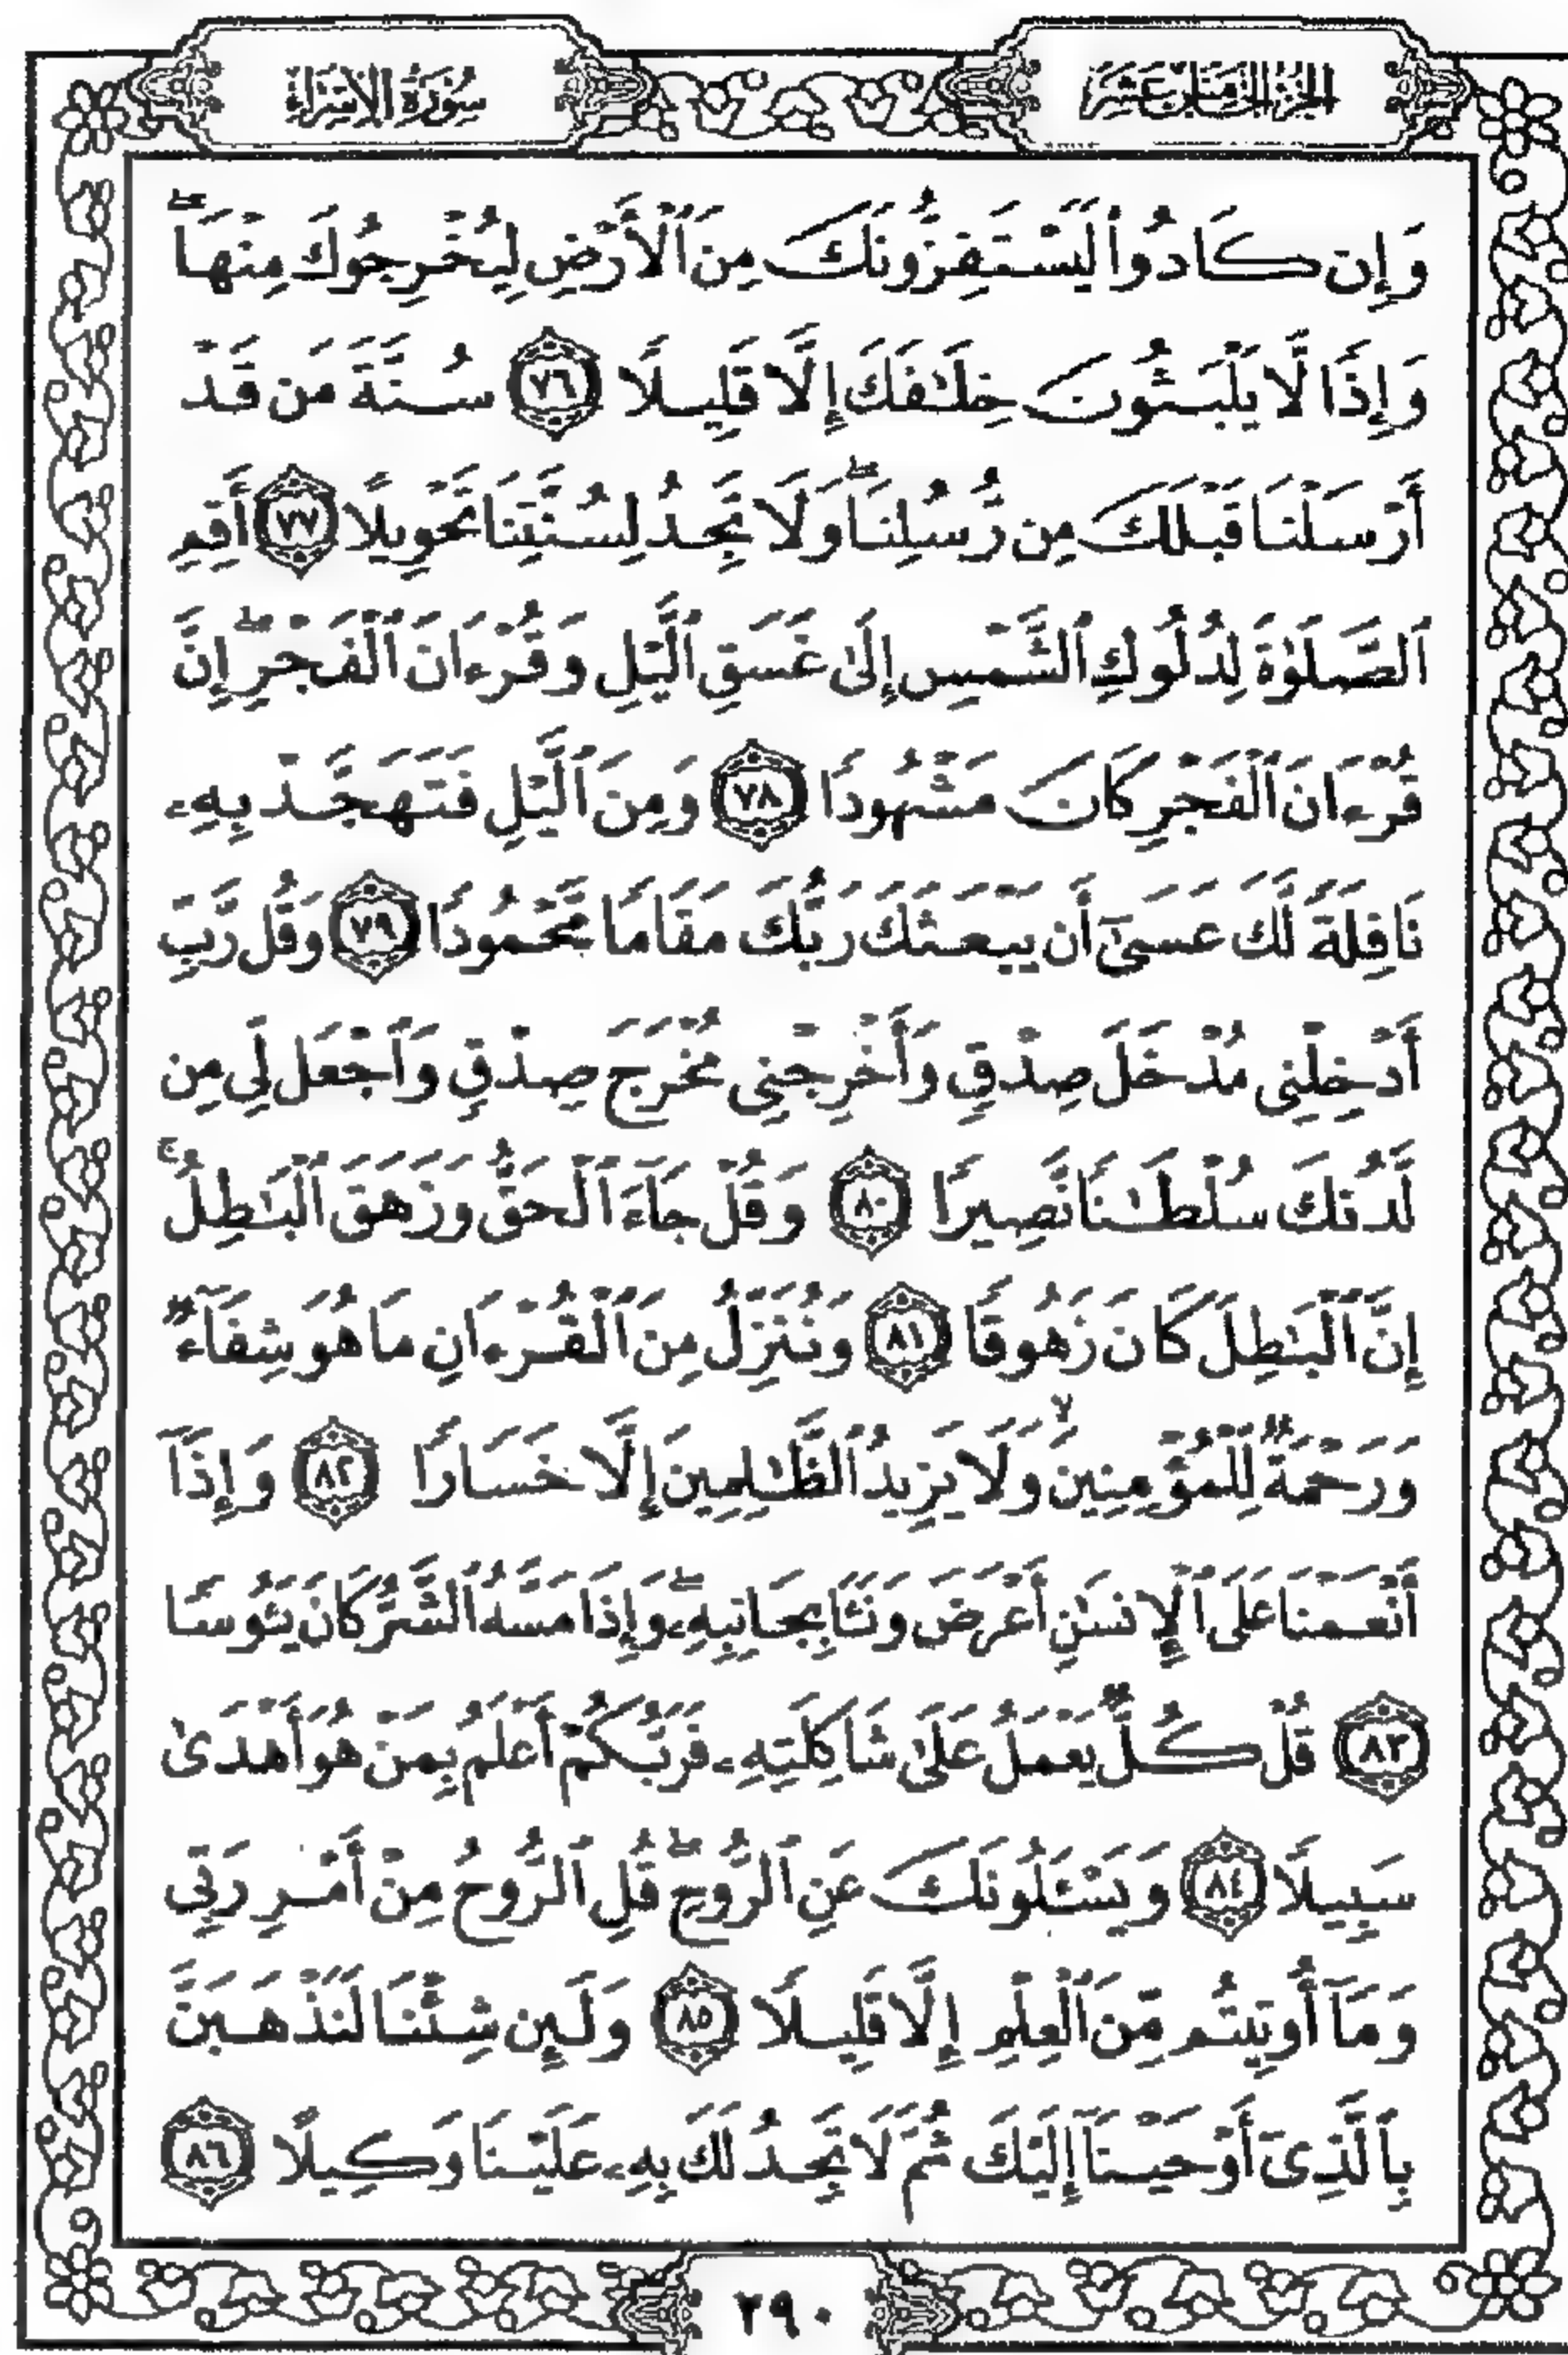 الجزء الخامس عشر
سورة الإسراء
وَإِن كَادُوا۟ لَيَسْتَفِزُّونَكَ مِنَ ٱلْأَرْضِ لِيُخْرِجُوكَ مِنْهَا ۖ
وَإِذًا لَّا يَلْبَثُونَ خِلَـٰفَكَ إِلَّا قَلِيلًا ٧٦ سُنَّةَ مَن قَدْ
أَرْسَلْنَا قَبْلَكَ مِن رُّسُلِنَا ۖ وَلَا تَجِدُ لِسُنَّتِنَا تَحْوِيلًا ٧٧ أَقِمِ
ٱلصَّلَوٰةَ لِدُلُوكِ ٱلشَّمْسِ إِلَىٰ غَسَقِ ٱلَّيْلِ وَقُرْءَانَ ٱلْفَجْرِ ۖ إِنَّ
قُرْءَانَ ٱلْفَجْرِ كَانَ مَشْهُودًا ٧٨ وَمِنَ ٱلَّيْلِ فَتَهَجَّدْ بِهِۦ
نَافِلَةً لَّكَ عَسَىٰٓ أَن يَبْعَثَكَ رَبُّكَ مَقَامًا مَّحْمُودًا ٧٩ وَقُل رَّبِّ
أَدْخِلْنِى مُدْخَلَ صِدْقٍ وَأَخْرِجْنِى مُخْرَجَ صِدْقٍ وَٱجْعَل لِّى مِن
لَّدُنكَ سُلْطَـٰنًا نَّصِيرًا ٨٠ وَقُلْ جَآءَ ٱلْحَقُّ وَزَهَقَ ٱلْبَـٰطِلُ ۚ
إِنَّ ٱلْبَـٰطِلَ كَانَ زَهُوقًا ٨١ وَنُنَزِّلُ مِنَ ٱلْقُرْءَانِ مَا هُوَ شِفَآءٌ
وَرَحْمَةٌ لِّلْمُؤْمِنِينَ ۙ وَلَا يَزِيدُ ٱلظَّـٰلِمِينَ إِلَّا خَسَارًا ٨٢ وَإِذَآ
أَنْعَمْنَا عَلَى ٱلْإِنسَـٰنِ أَعْرَضَ وَنَـَٔا بِجَانِبِهِۦ ۖ وَإِذَا مَسَّهُ ٱلشَّرُّ كَانَ يَـُٔوسًا
٨٣ قُلْ كُلٌّ يَعْمَلُ عَلَىٰ شَاكِلَتِهِۦ فَرَبُّكُمْ أَعْلَمُ بِمَنْ هُوَ أَهْدَىٰ
سَبِيلًا ٨٤ وَيَسْـَٔلُونَكَ عَنِ ٱلرُّوحِ ۖ قُلِ ٱلرُّوحُ مِنْ أَمْرِ رَبِّى
وَمَآ أُوتِيتُم مِّنَ ٱلْعِلْمِ إِلَّا قَلِيلًا ٨٥ وَلَئِن شِئْنَا لَنَذْهَبَنَّ
بِٱلَّذِىٓ أَوْحَيْنَآ إِلَيْكَ ثُمَّ لَا تَجِدُ لَكَ بِهِۦ عَلَيْنَا وَكِيلًا ٨٦
٢٩٠